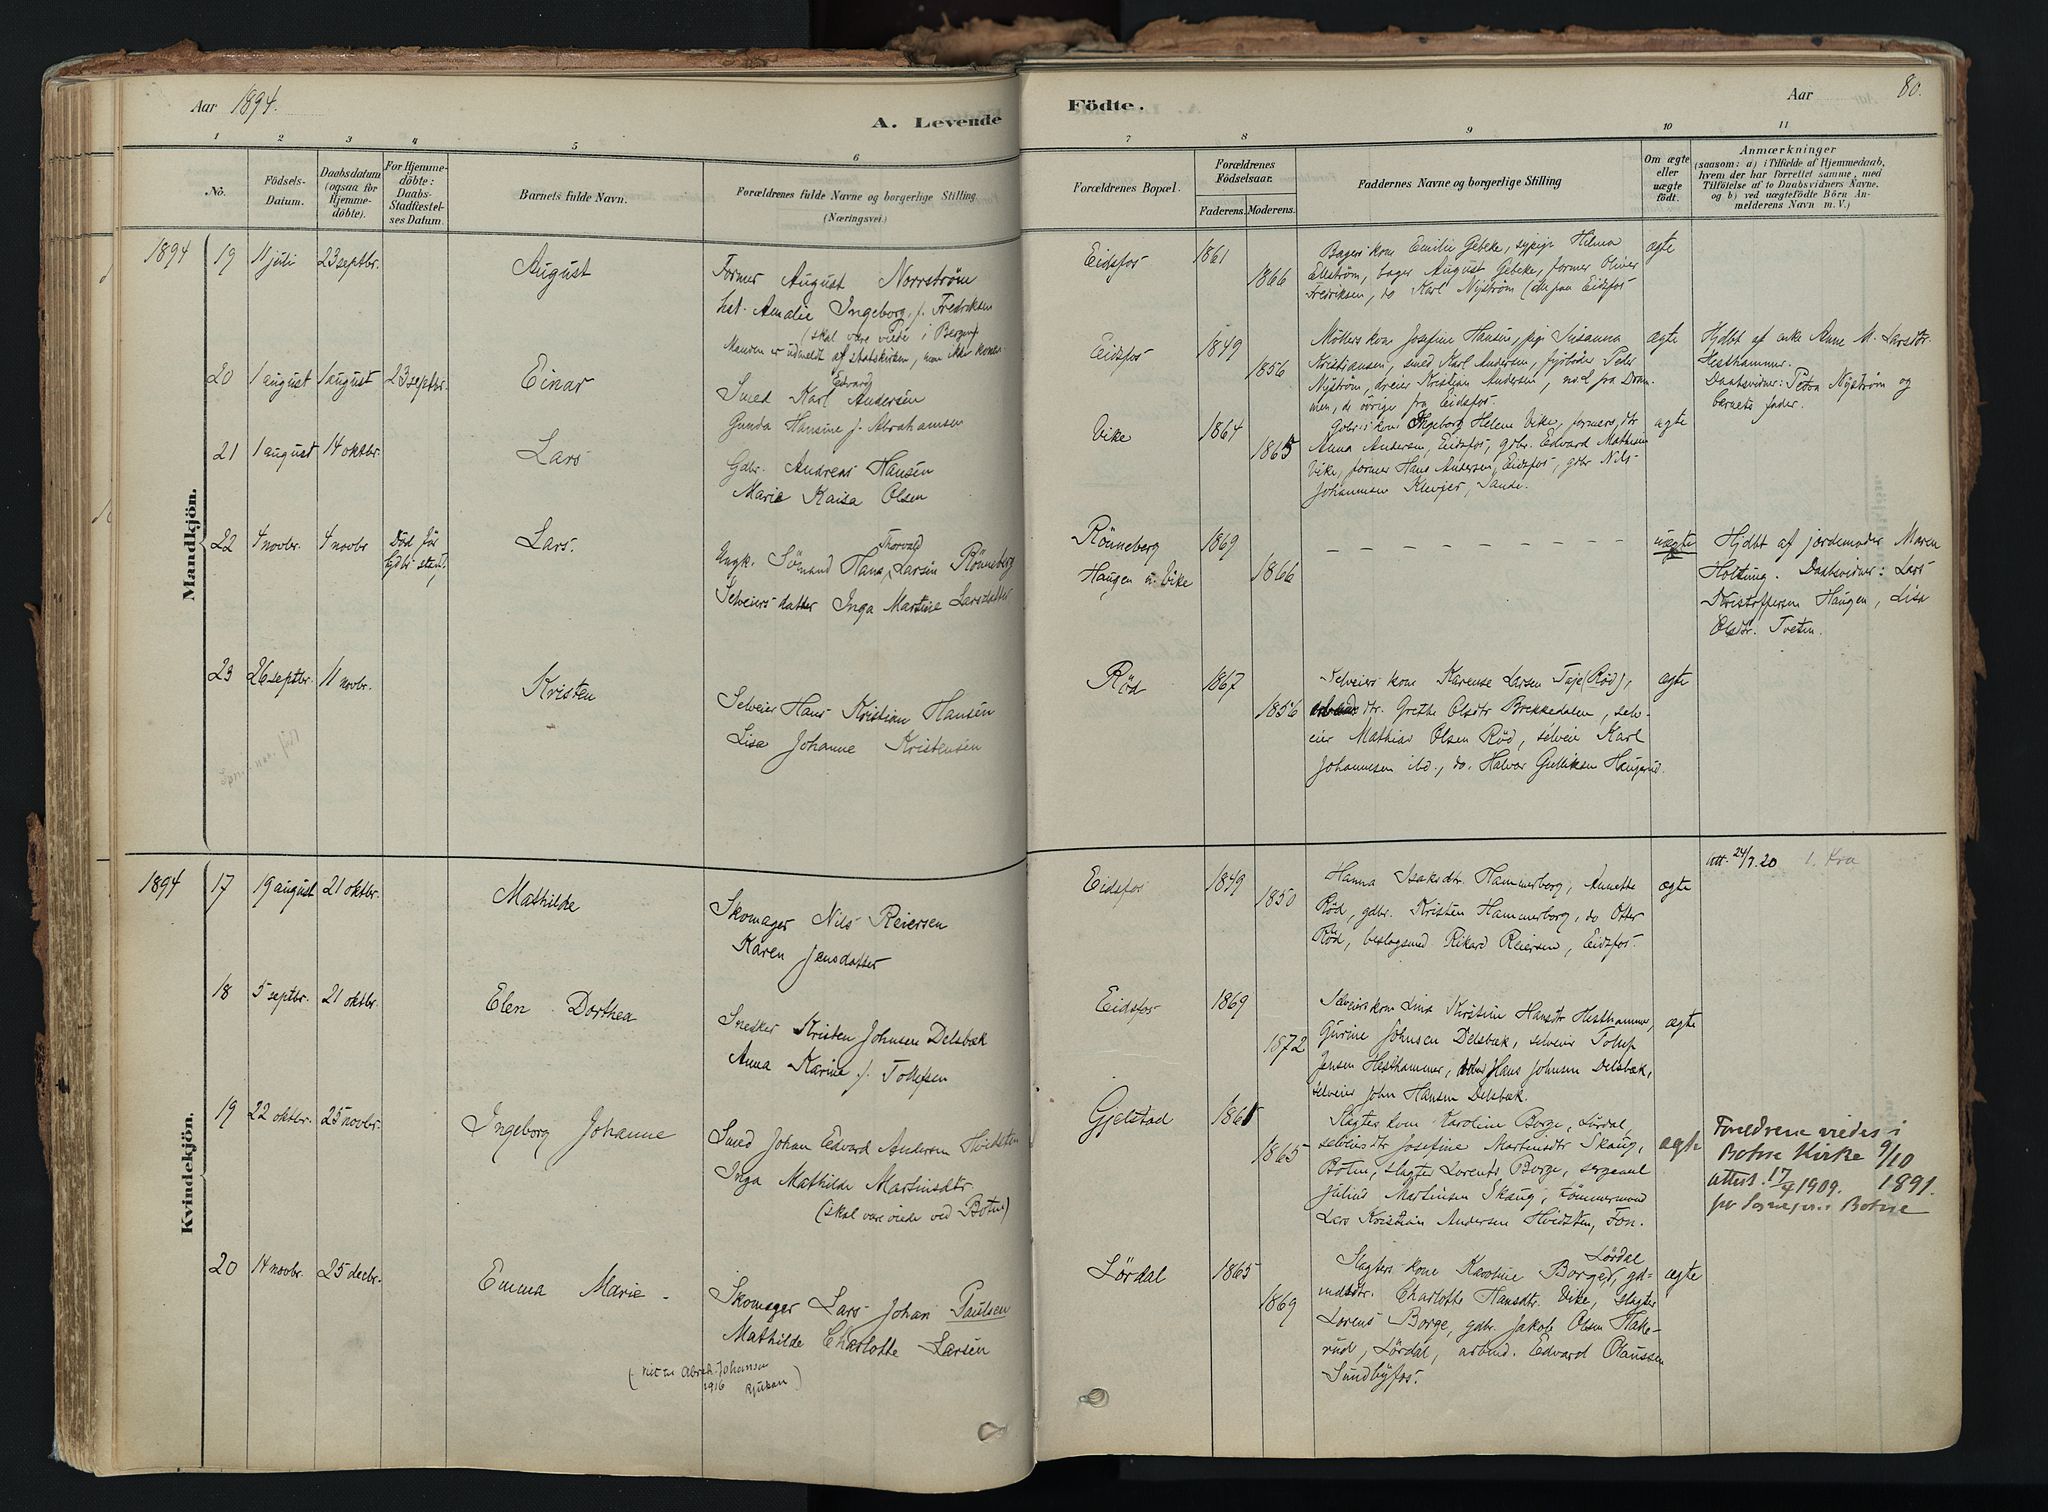 Aar 1894.
A. Levende
Födte.
Aar
80.
1 2 3 4 5 6 7 8 9 10 11
No.
Födsels-
Datum.
Daabsdatum
(ogsaa for
Hjemme-
döbte).
For Hjemme-
döbte:
Daabs-
Stadfæstel-
ses Datum.
Barnets fulde Navn.
Forældrenes fulde Navne og borgerlige Stilling
(Næringsvei.)
Forældrenes Bopæl.
Forældrenes
Födselsaar.
Faderens. Moderens.
Faddernes Navne og borgerlige Stilling
Om ægte
eller
uægte
födt.
Anmærkninger
(saasom: a) i Tilfælde af Hjemmedaab,
hvem der har forrettet samme, med
Tilföielse af to Daabsvidners Navne,
og b) ved uægtefödte Börn An-
melderens Navn m. V.)
Mandkjön.
1894 19 11 juli 23 septbr.
August
Former August Norrström
hst. Amalie Ingeborg f. Fredriksen
(skal være viede i Bergen)
Manden er udmeldt af statskirken, men ikke konen
Eidsfos 1861
1866
Bagers kone Emilie Gebeke, sypige Hilma
Ellström, bager August Gebeke, former Oliver
Fredriksen, do Karl Nyström (alle fra Eidsfos
ægte
20 1 august 1 august 23 septbr.
Einar
Smed Karl Edvard Andersen
Gunda Hansine f. Abrahamsen
Eidsfos 1849
1856
Möllers kone Josefine Hansen, pige Susanna
Kristiansen, smed Karl Andersen, fyrböder Peter
Nyström, dreier Kristian Andersen, no 2 fra Dram-
men, de övrige fra Eidsfos.
ægte
Hjdbt af enke Anne M. Larsdtr.
Hesthammer.
Daabsvidner: Petra Nyström og
barnets fader.
21 1 august 14 oktbr.
Lars
Gdbr. Andreas Hansen
Marie Kaisa Olsen
Vike 1864
1865
Gdbr.s kone Ingeborg Helene Vike, formers dtr
Anna Andersen, Eidsfos, gdbr. Edvard Mathisen
Vike, former Hans Andersen, Eidsfos, gdbr Nils
Johannesen Klevjer, Sande.
ægte
22 4 novbr. 4 novbr Död för
Lars.
Ungk. Sömand Hans Thorvald Larsen Rönneberg
Selveiers datter Inga Martine Larsdatter
Rönneberg
Haugen u. Vike
1869
1866
uægte
Hjdbt af jordemoder Maren
Holtung. Daabsvidner: Lars
Kristoffersen Haugen, Lisa
Olsdtr. Tveten.
23 26 septbr. 11 novbr.
Kristen
Selveier Hans Kristian Hansen
Lisa Johanne Kristensen
Röd 1867
1856
Selveiers kone Karense Larsen Teje (Röd),
dtr. Grethe Olsdtr Brekkedalen, selv-
eier Mathias Olsen Röd, selveier Karl
Johannesen ibd., do. Halvor Gulliksen Haugerud.
ægte
Kvindekjön.
1894 17 19 august 21 oktbr.
Mathilde
Skomager Nils Reiersen
Karen Jensdatter
Eidsfos 1849
1850
Hanna Isaksdtr. Hammerborg, Annette
Röd, gdbr. Kristen Hammerborg, do Otter
Röd, beslagsmed Rikard Reiersen, Eidsfos.
ægte
att. 24/7.20
18 5 septbr. 21 oktbr.
Elen Dorthea
Snekker Kristen Johnsen Delsbæk
Anna Karine f. Tollefsen
Eidsfos 1869
1872
Selveiers kone Lina Kirstine Hansdtr Hesthammer,
Gurine Johnsen Delsbæk, selveier Tollef
Jensen Hesthammer, Hans Johnsen Delsbæk,
selveier John Hansen Delsbæk.
ægte
19 22 oktbr. 25 novbr.
Ingeborg Johanne
Smed Johan Edvard Andersen Hvidsten
Inga Mathilde Martinsdtr.
(skal være viede ved Botne)
Gjelstad 1861
1865
Slagters kone Karoline Borge, Lördal,
selveiersdtr Josefine Martinsdtr Skaug,
Botne, slagter Lorents Borge, sergeant
Julius Martinsen Skaug, tömmermand
Lars Kristian Andersen Hvidsten, Fon.
ægte
Forældrene viedes i
Botne Kirke 9/10
1891.
attest. 17/4 1909.
Botne
20 14 novbr. 25 decbr.
Emma Marie
Skomager Lars Johan Paulsen
Mathilde Charlotte Larsen
1916 Rjukan)
Lördal 1865
1869
Slagters kone Karoline Borge, Lördal, gd-
mdsdtr. Charlotte Hansdtr. Vike, slagter
Lorens Borge, gdbr. Jakob Olsen Hake-
rud, Lördal, arbmd. Edvard Olaussen
Sundbyfos.
ægte